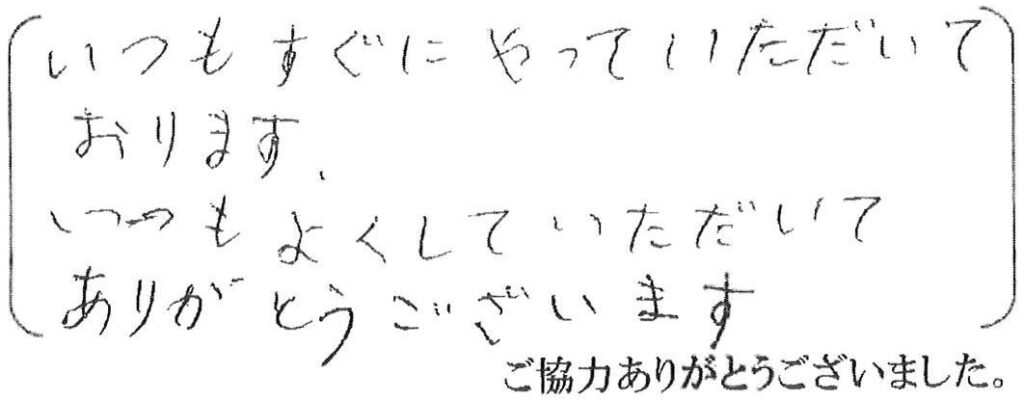 いつもすぐにやっていただいて
おります、
いつもよくしていただいて
ありがとうございます
ご協力ありがとうございました。